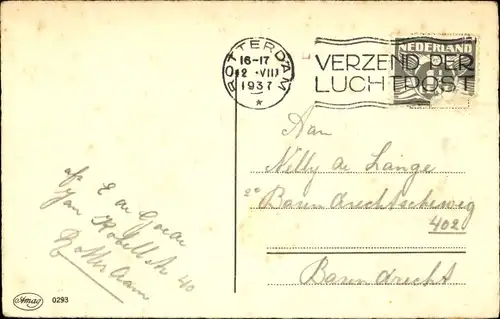 ROTTERDAM
16-17
12 .VIII
1937
*
VERZEND PER
LUCHTPOST
NEDERLAND
Aan
Nelly de Lange
2e Barendrechtscheweg
402
Barendrecht
afz E de
Jan Kobellstr 40
Rotterdam
Amag 0293